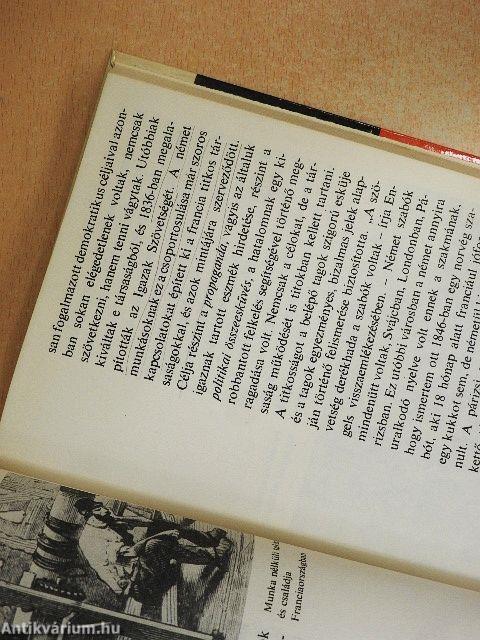 san fogalmazott demokratikus céljaival azon-
ban sokan elégedetlenek voltak, nemcsak
szövetkezni, hanem tenni vágytak. Utóbbiak
kiváltak e társaságból, és 1836-ban megala-
pították az Igazak Szövetségét. A német
munkásoknak ez a csoportosulása már szoros
kapcsolatokat épített ki a francia titkos tár-
saságokkal, és azok mintájára szerveződött.
Célja részint a propaganda, vagyis az általuk
igaznak tartott eszmék hirdetése, részint a
politikai összeesküvés, a hatalomnak egy ki-
robbantott felkelés segítségével történő meg-
ragadása volt. Nemcsak a célokat, de a tár-
saság működését is titokban kellett tartani.
A titkosságot a belépő tagok szigorú esküje
és a tagok egyezményes, bizalmas jelek alap-
ján történő felismerése biztosította. „A szö-
vetség derékhada a szabók voltak – írja En-
gels visszaemlékezésében. – Német szabók
mindenütt voltak, Svájcban, Londonban, Pá-
rizsban. Ez utóbbi városban a német annyira
uralkodó nyelve volt ennek a szakmának,
hogy ismertem ott 1846-ban egy norvég sza-
bót, aki 18 hónap alatt franciául jófor
egy kukkot sem, de németül
nult. A párizsi
kettő
Munka nélküli
és családja
Franciaországban
Antikvárium.hu